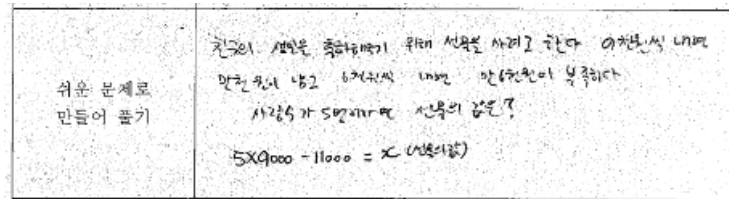 쉬운 문제로
만들어 풀기
친구의 생일을 축하해주기 위해 선물을 사려고 한다 9천원씩 내면
만천원이 남고 6천원씩 내면 만6천원이 부족하다
사람수가 5명이라면 선물의 값은?
5X9000 - 11000 = x (선물의 값)